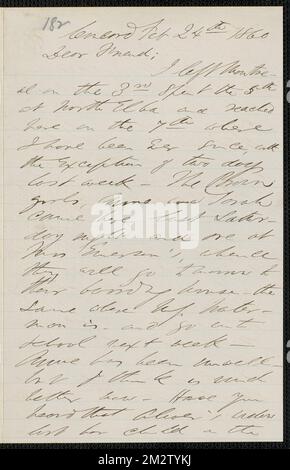 182
Concord Feb 24th 1860
Dear Friend;
I left Montre-
al on the 3rd Spent the 5th
at North Elba and reached
here on the 7th where
I have been ever since, with
the exception of two days
last week — The Brown
girls, Anne and Sarah
came here last Satur-
day night and are at
Mrs Emerson's, whence
they will go
their boarding house — the
same where
is — and go into
school next week —
Anne has been unwell —
but I think is much
better now — Have you
heard that Oliver's widow
lost her child in the
alamy
Image ID: 2M2TYKJ
www.alamy.com